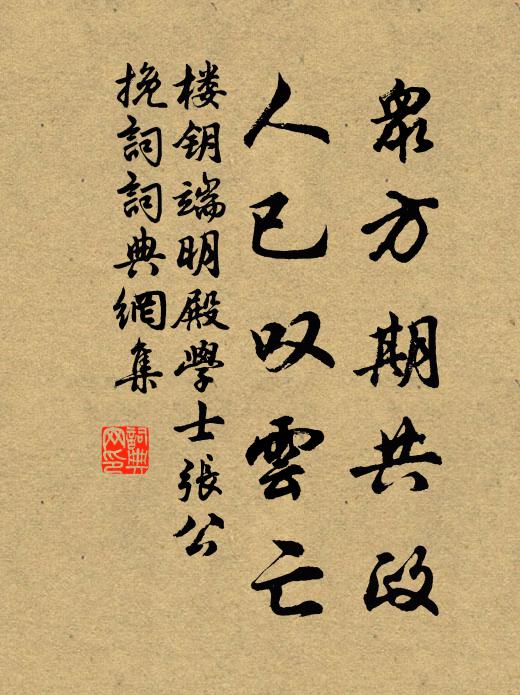 眾方期共政
人已叹雲亡
楼钥端明殿學士張公
挽詞詞典網集
詞典網印